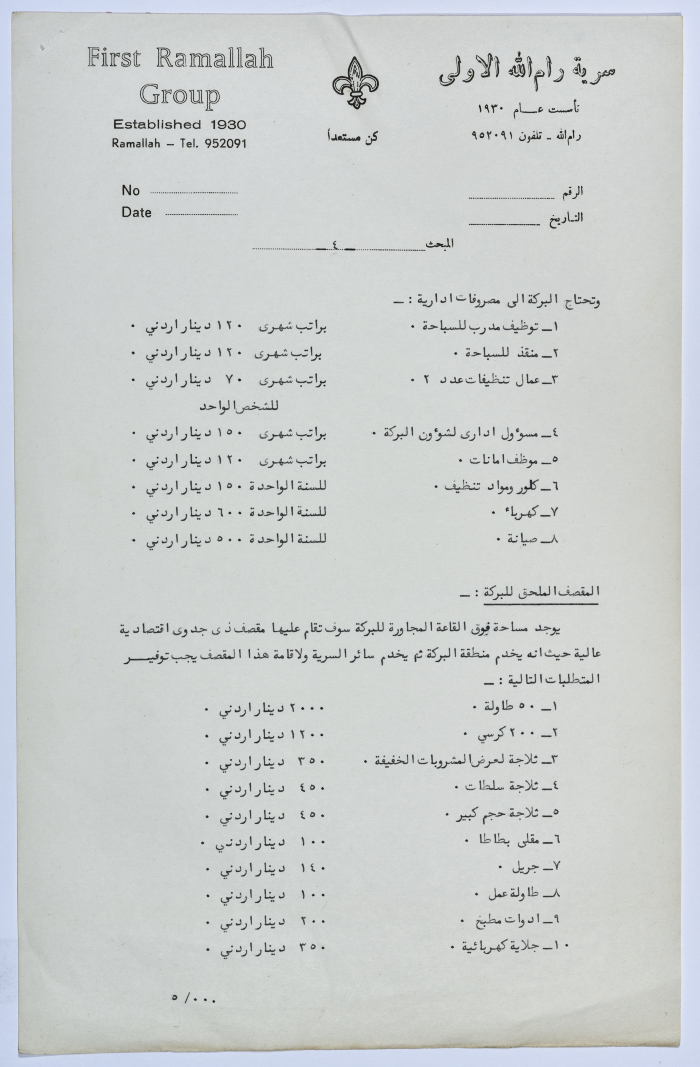 First Ramallah
Group
Established 1930
Ramallah – Tel. 952091
كن مستعداً
سرية رام الله الاولى
تأسست عــام ١٩٣٠
رام الله ـ تلفون ٩٥٢٠٩١
No
Date
الرقم
التاريخ
المبحث ـ ٤ ـ
وتحتاج البركة الى مصروفات ادارية : ـ
١ـ توظيف مدرب للسباحة ٠ براتب شهرى ١٢٠ دينار اردني ٠
٢ـ منقذ للسباحة ٠ براتب شهرى ١٢٠ دينار اردني ٠
٣ـ عمال تنظيفات عدد ٢ ٠ براتب شهرى ٧٠ دينار اردني ٠
للشخص الواحد
٤ـ مسوؤل ادارى لشوؤن البركة ٠ براتب شهرى ١٥٠ دينار اردني ٠
٥ـ موظف امانات ٠ براتب شهرى ١٢٠ دينار اردني ٠
٦ـ كلور ومواد تنظيف ٠ للسنة الواحدة ١٥٠ دينار اردني ٠
٧ـ كهرباء ٠ للسنة الواحدة ٦٠٠ دينار اردني ٠
٨ـ صيانة ٠ للسنة الواحدة ٥٠٠ دينار اردني ٠
المقصف الملحق للبركة : ـ
يوجد مساحة فوق القاعة المجاورة للبركة سوف تقام عليها مقصف ذى جدوى اقتصادية
عالية حيث انه يخدم منطقة البركة ثم يخدم سائر السرية ولاقامة هذا المقصف يجب توفيـــر
المتطلبات التالية : ـ
١ـ ٥٠ طاولة ٠ ٢٠٠٠ دينار اردني ٠
٢ـ ٢٠٠ كرسي ٠ ١٢٠٠ دينار اردني ٠
٣ـ ثلاجة لعرض المشروبات الخفيفة ٠ ٣٥٠ دينار اردني ٠
٤ـ ثلاجة سلطات ٠ ٤٥٠ دينار اردني ٠
٥ـ ثلاجة حجم كبير ٠ ٤٥٠ دينار اردني ٠
٦ـ مقلى بطاطا ٠ ١٠٠ دينار اردني ٠
٧ـ جريل ٠ ١٤٠ دينار اردني ٠
٨ـ طاولة عمل ٠ ١٠٠ دينار اردني ٠
٩ـ ادوات مطبخ ٠ ٢٠٠ دينار اردني ٠
١٠ـ جلاية كهربائية ٠ ٣٥٠ دينار اردني ٠
٥ /٠٠٠